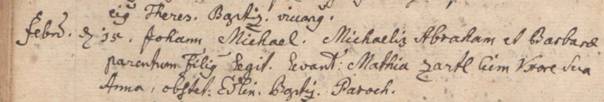 eig Theres. Baptiz. vicarg.
Febr: d 15. Johann Michael. Michaelis Abraham et Barbara
parentum Filig Legit. Levant: Mathia Zartl Cum Uxore Sua
Anna, obstet. Baptiz. Paroch.